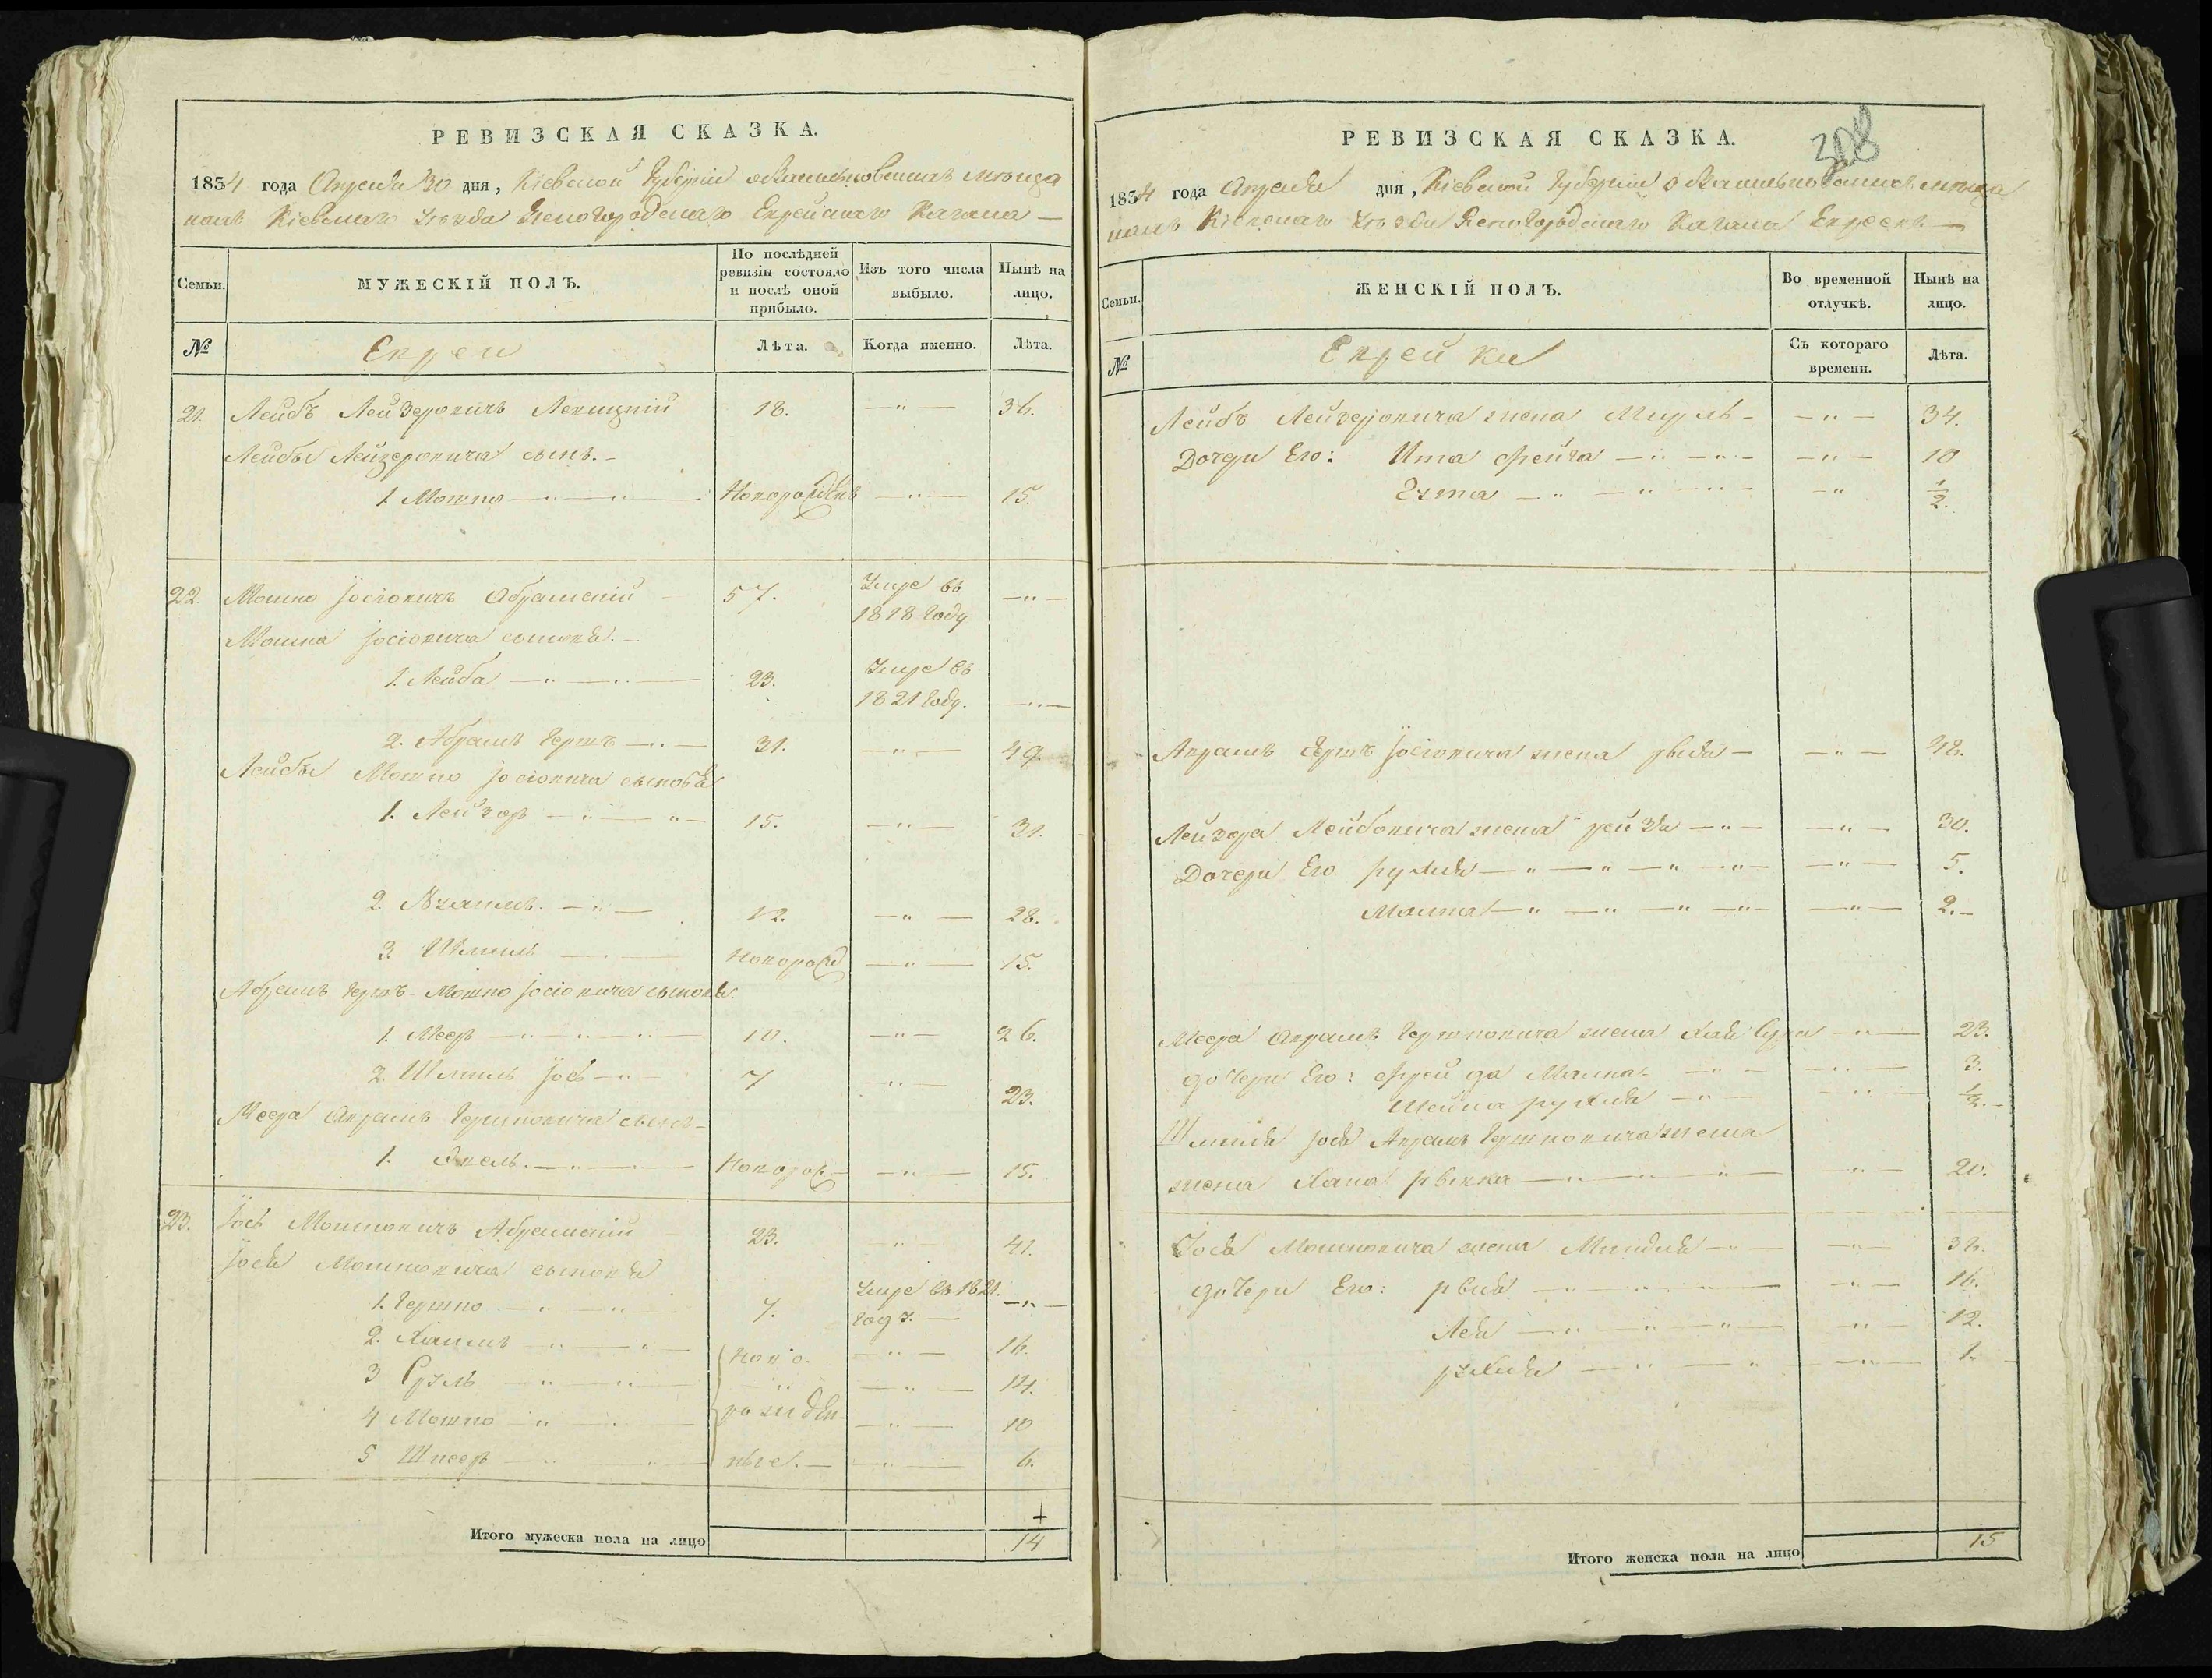 РЕВИЗСКАЯ СКАЗКА.
1834 года Апреля 30 дня, Кіевской Губерніи о Васильковскихъ мѣща
нахъ Кіевскаго Уѣзда Ясногородскаго Еврейскаго Кагала —
Семьи.
МУЖЕСКІЙ ПОЛЪ.
По послѣдней ревизіи состояло и послѣ оной прибыло.
Изъ того числа выбыло.
Нынѣ на лицо.
№
Евреи
Лѣта.
Когда именно.
Лѣта.
21. Лейбъ Лейзеровичъ 18. — " — 36.
Лейбы Лейзеровича сынъ. —
1. Мошко — " — " — Новорожденъ — " — 15.
22. Мошко Іосіовичъ Абрамскій 57. Умре въ 1818 году — " —
Мошка Іосіовича сыновья. —
1. Лейба — " — " — 23. Умре въ 1821 году. — " —
2. Абрамъ Гершъ — " — 31. — " — 49.
Лейбы Мошко Іосіовича сыновья
1. Лейзоръ — " — " — 15. — " — 31.
2. — " — 12. — " — 28.
3. Шмиль — " — Новорож — " — 15.
Абрамъ Гершъ Мошко Іосіовича сыновья.
1. Меэръ — " — " — " — 10. — " — 26.
2. Шмиль Іось — " — 7 — " — 23.
Меера Аврамъ Гершковича сынъ —
1. — " — " — Новорож — " — 15.
23. Іось Мошковичъ Абрамскій 23. " 41.
Іося Мошковича сыновья
1. Гершко — " — " — 7. Умре въ 1821. году. — — " —
2. Хаимъ — " — " — ново. — " — 16.
3 Сруль — " — " — " — " — 14.
4 Мошко — " — " — рожден — " — 10
5 Шнееръ — " — " — ные. — — " — 6.
Итого мужеска пола на лицо 14
308
РЕВИЗСКАЯ СКАЗКА.
1834 года Апреля дня, Кіевской Губерніи о Васильковскихъ мѣща
нахъ Кіевскаго Уѣзда Ясногородскаго Кагала Евреевъ —
Семьи.
ЖЕНСКІЙ ПОЛЪ.
Во временной отлучкѣ.
Нынѣ на лицо.
№
Еврейки
Съ котораго времени.
Лѣта.
Лейбъ Лейзеровича жена Мирль — — " — 34.
Дочери Его: Ита Фейга — " — " — — " — 10
— " — " — " — — " 1/2.
Аврамъ Гершъ Іосіовича жена Рыся — — " — 48.
Лейзора Лейбовича жена Рейзя — " — — " — 30.
Дочери Его Рухля — " — " — " — " — — " — 5.
Малка — " — " — " — " — — " — 2. —
Меера Аврамъ Гершковича жена Хая Сура — " — 23.
дочери Его: Фрейда Малка — " — — " — 3.
Шейна Рухля — " — — " — 1/2. —
Шмиля Іося Аврамъ Гершковича жена
жена Хана Ривка — " — " — " — — " — 20.
Іося Мошковича жена Миндля — " — — " —
дочери Его: Рыся — " — " — " — — " — 16.
Лея — " — " — " — — " — 12.
— " — " — — " 1. —
Итого женска пола на лицо 15